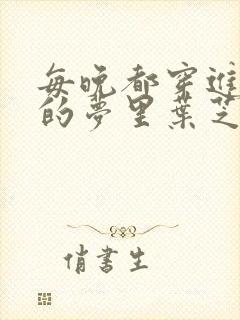 每晚都穿進
的夢里葉芝
俏書生